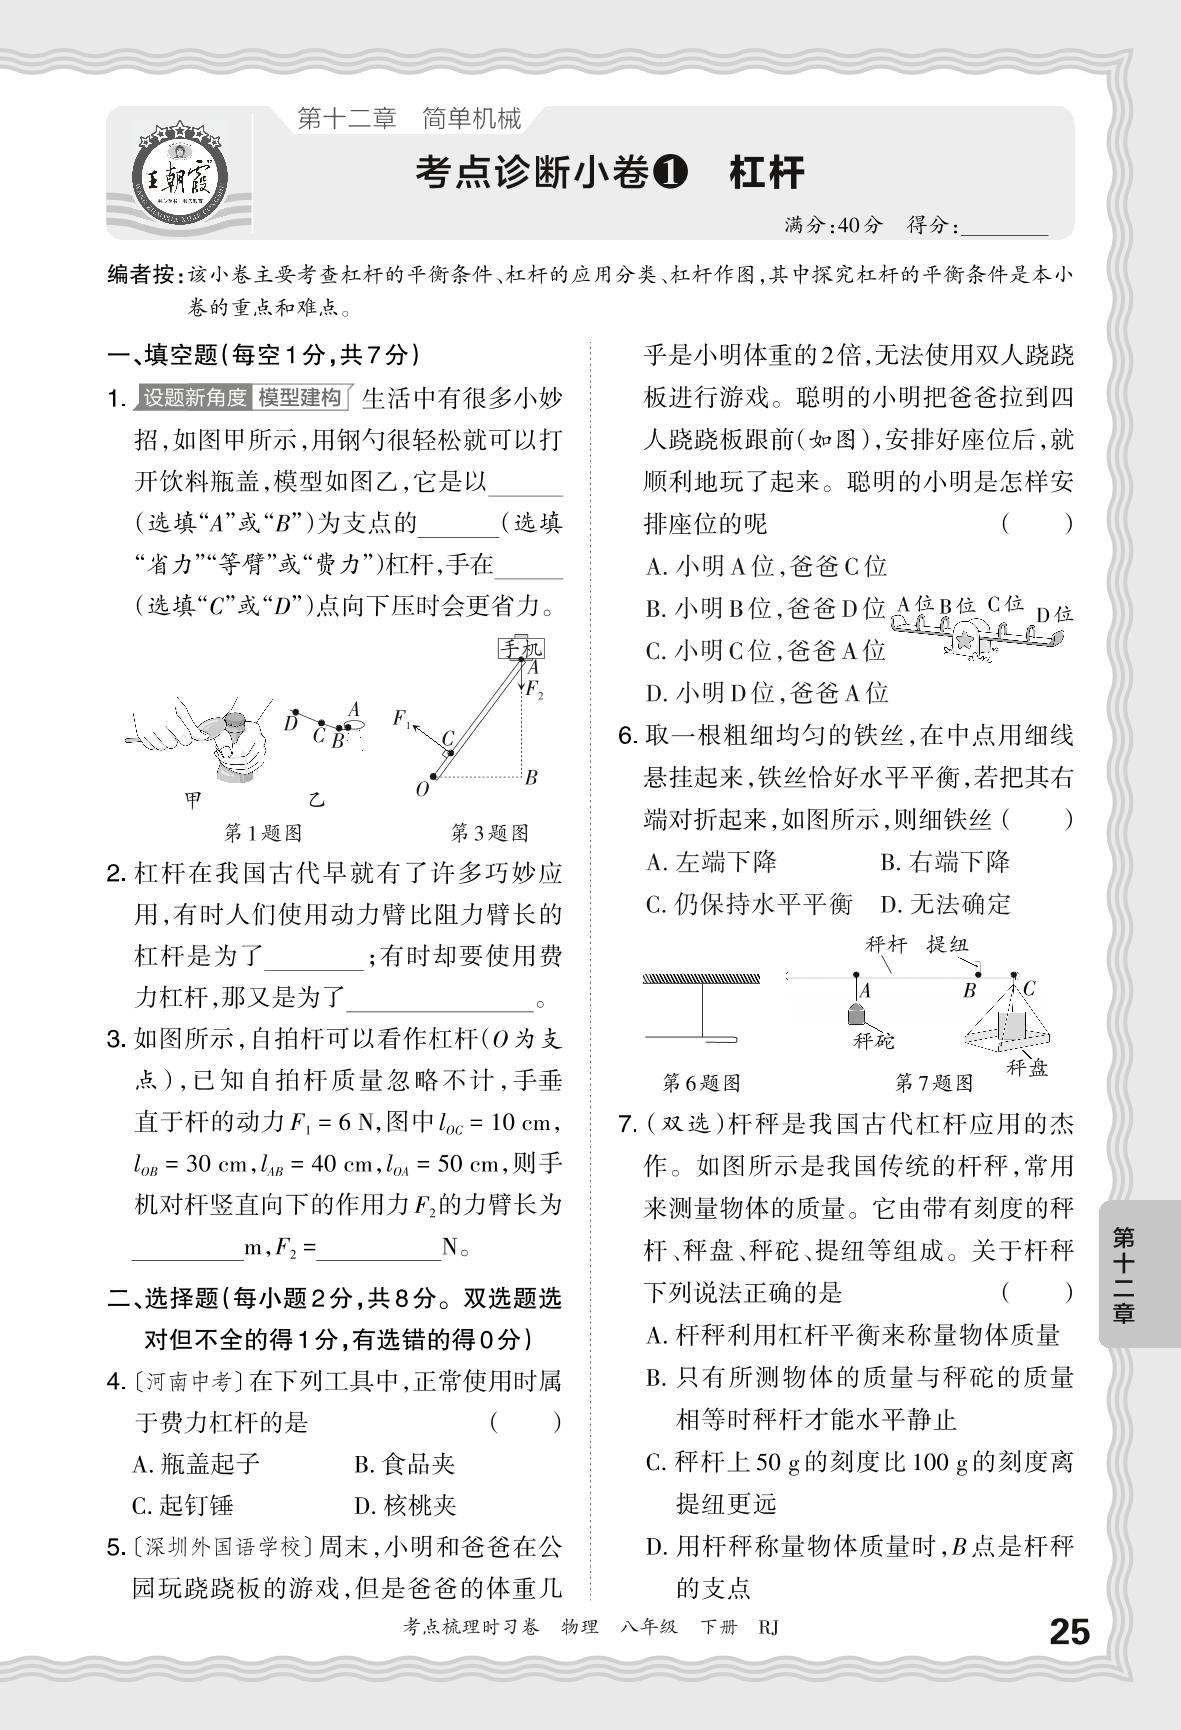 第十二章　简单机械
王朝霞
考点诊断小卷❶　杠杆
满分:40分　得分:________
编者按:该小卷主要考查杠杆的平衡条件、杠杆的应用分类、杠杆作图,其中探究杠杆的平衡条件是本小
卷的重点和难点。
一、填空题(每空1分,共7分)
1. 设题新角度 模型建构 生活中有很多小妙
招,如图甲所示,用钢勺很轻松就可以打
开饮料瓶盖,模型如图乙,它是以______
(选填“A”或“B”)为支点的______(选填
“省力”“等臂”或“费力”)杠杆,手在______
(选填“C”或“D”)点向下压时会更省力。
手机
A
F₂
F₁
C
O
B
D
C
B
A
甲
乙
第1题图
第3题图
2. 杠杆在我国古代早就有了许多巧妙应
用,有时人们使用动力臂比阻力臂长的
杠杆是为了________;有时却要使用费
力杠杆,那又是为了______________。
3. 如图所示,自拍杆可以看作杠杆(O为支
点),已知自拍杆质量忽略不计,手垂
直于杆的动力F₁ = 6 N,图中l_OC = 10 cm,
l_OB = 30 cm,l_AB = 40 cm,l_OA = 50 cm,则手
机对杆竖直向下的作用力F₂的力臂长为
________m,F₂ =_________N。
二、选择题(每小题2分,共8分。双选题选
对但不全的得1分,有选错的得0分)
4.〔河南中考〕在下列工具中,正常使用时属
于费力杠杆的是　(　　)
A. 瓶盖起子　B. 食品夹
C. 起钉锤　D. 核桃夹
5.〔深圳外国语学校〕周末,小明和爸爸在公
园玩跷跷板的游戏,但是爸爸的体重几
乎是小明体重的2倍,无法使用双人跷跷
板进行游戏。聪明的小明把爸爸拉到四
人跷跷板跟前(如图),安排好座位后,就
顺利地玩了起来。聪明的小明是怎样安
排座位的呢　(　　)
A. 小明A位,爸爸C位
B. 小明B位,爸爸D位
C. 小明C位,爸爸A位
D. 小明D位,爸爸A位
A位 B位 C位 D位
6. 取一根粗细均匀的铁丝,在中点用细线
悬挂起来,铁丝恰好水平平衡,若把其右
端对折起来,如图所示,则细铁丝 (　　)
A. 左端下降　B. 右端下降
C. 仍保持水平平衡　D. 无法确定
秤杆　提纽
A
B
C
秤砣
秤盘
第6题图
第7题图
7.(双选)杆秤是我国古代杠杆应用的杰
作。如图所示是我国传统的杆秤,常用
来测量物体的质量。它由带有刻度的秤
杆、秤盘、秤砣、提纽等组成。关于杆秤
下列说法正确的是　(　　)
A. 杆秤利用杠杆平衡来称量物体质量
B. 只有所测物体的质量与秤砣的质量
相等时秤杆才能水平静止
C. 秤杆上50 g的刻度比100 g的刻度离
提纽更远
D. 用杆秤称量物体质量时,B点是杆秤
的支点
第十二章
考点梳理时习卷　物理　八年级　下册　RJ
25